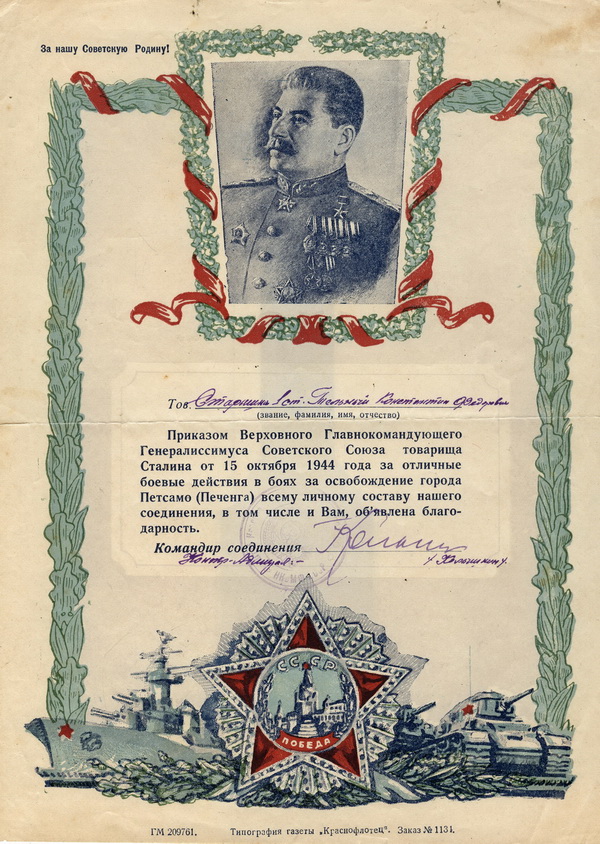 За нашу Советскую Родину!
Тов. Старшина 1 ст. Тельный Константин Федорович
(звание, фамилия, имя, отчество)
Приказом Верховного Главнокомандующего
Генералиссимуса Советского Союза товарища
Сталина от 15 октября 1944 года за отличные
боевые действия в боях за освобождение города
Петсамо (Печенга) всему личному составу нашего
соединения, в том числе и Вам, об'явлена благо-
дарность.
Командир соединения
Контр-Адмирал- Колышкин
СССР
ПОБЕДА
ГМ 209761. Типография газеты „Краснофлотец". Заказ № 1131.